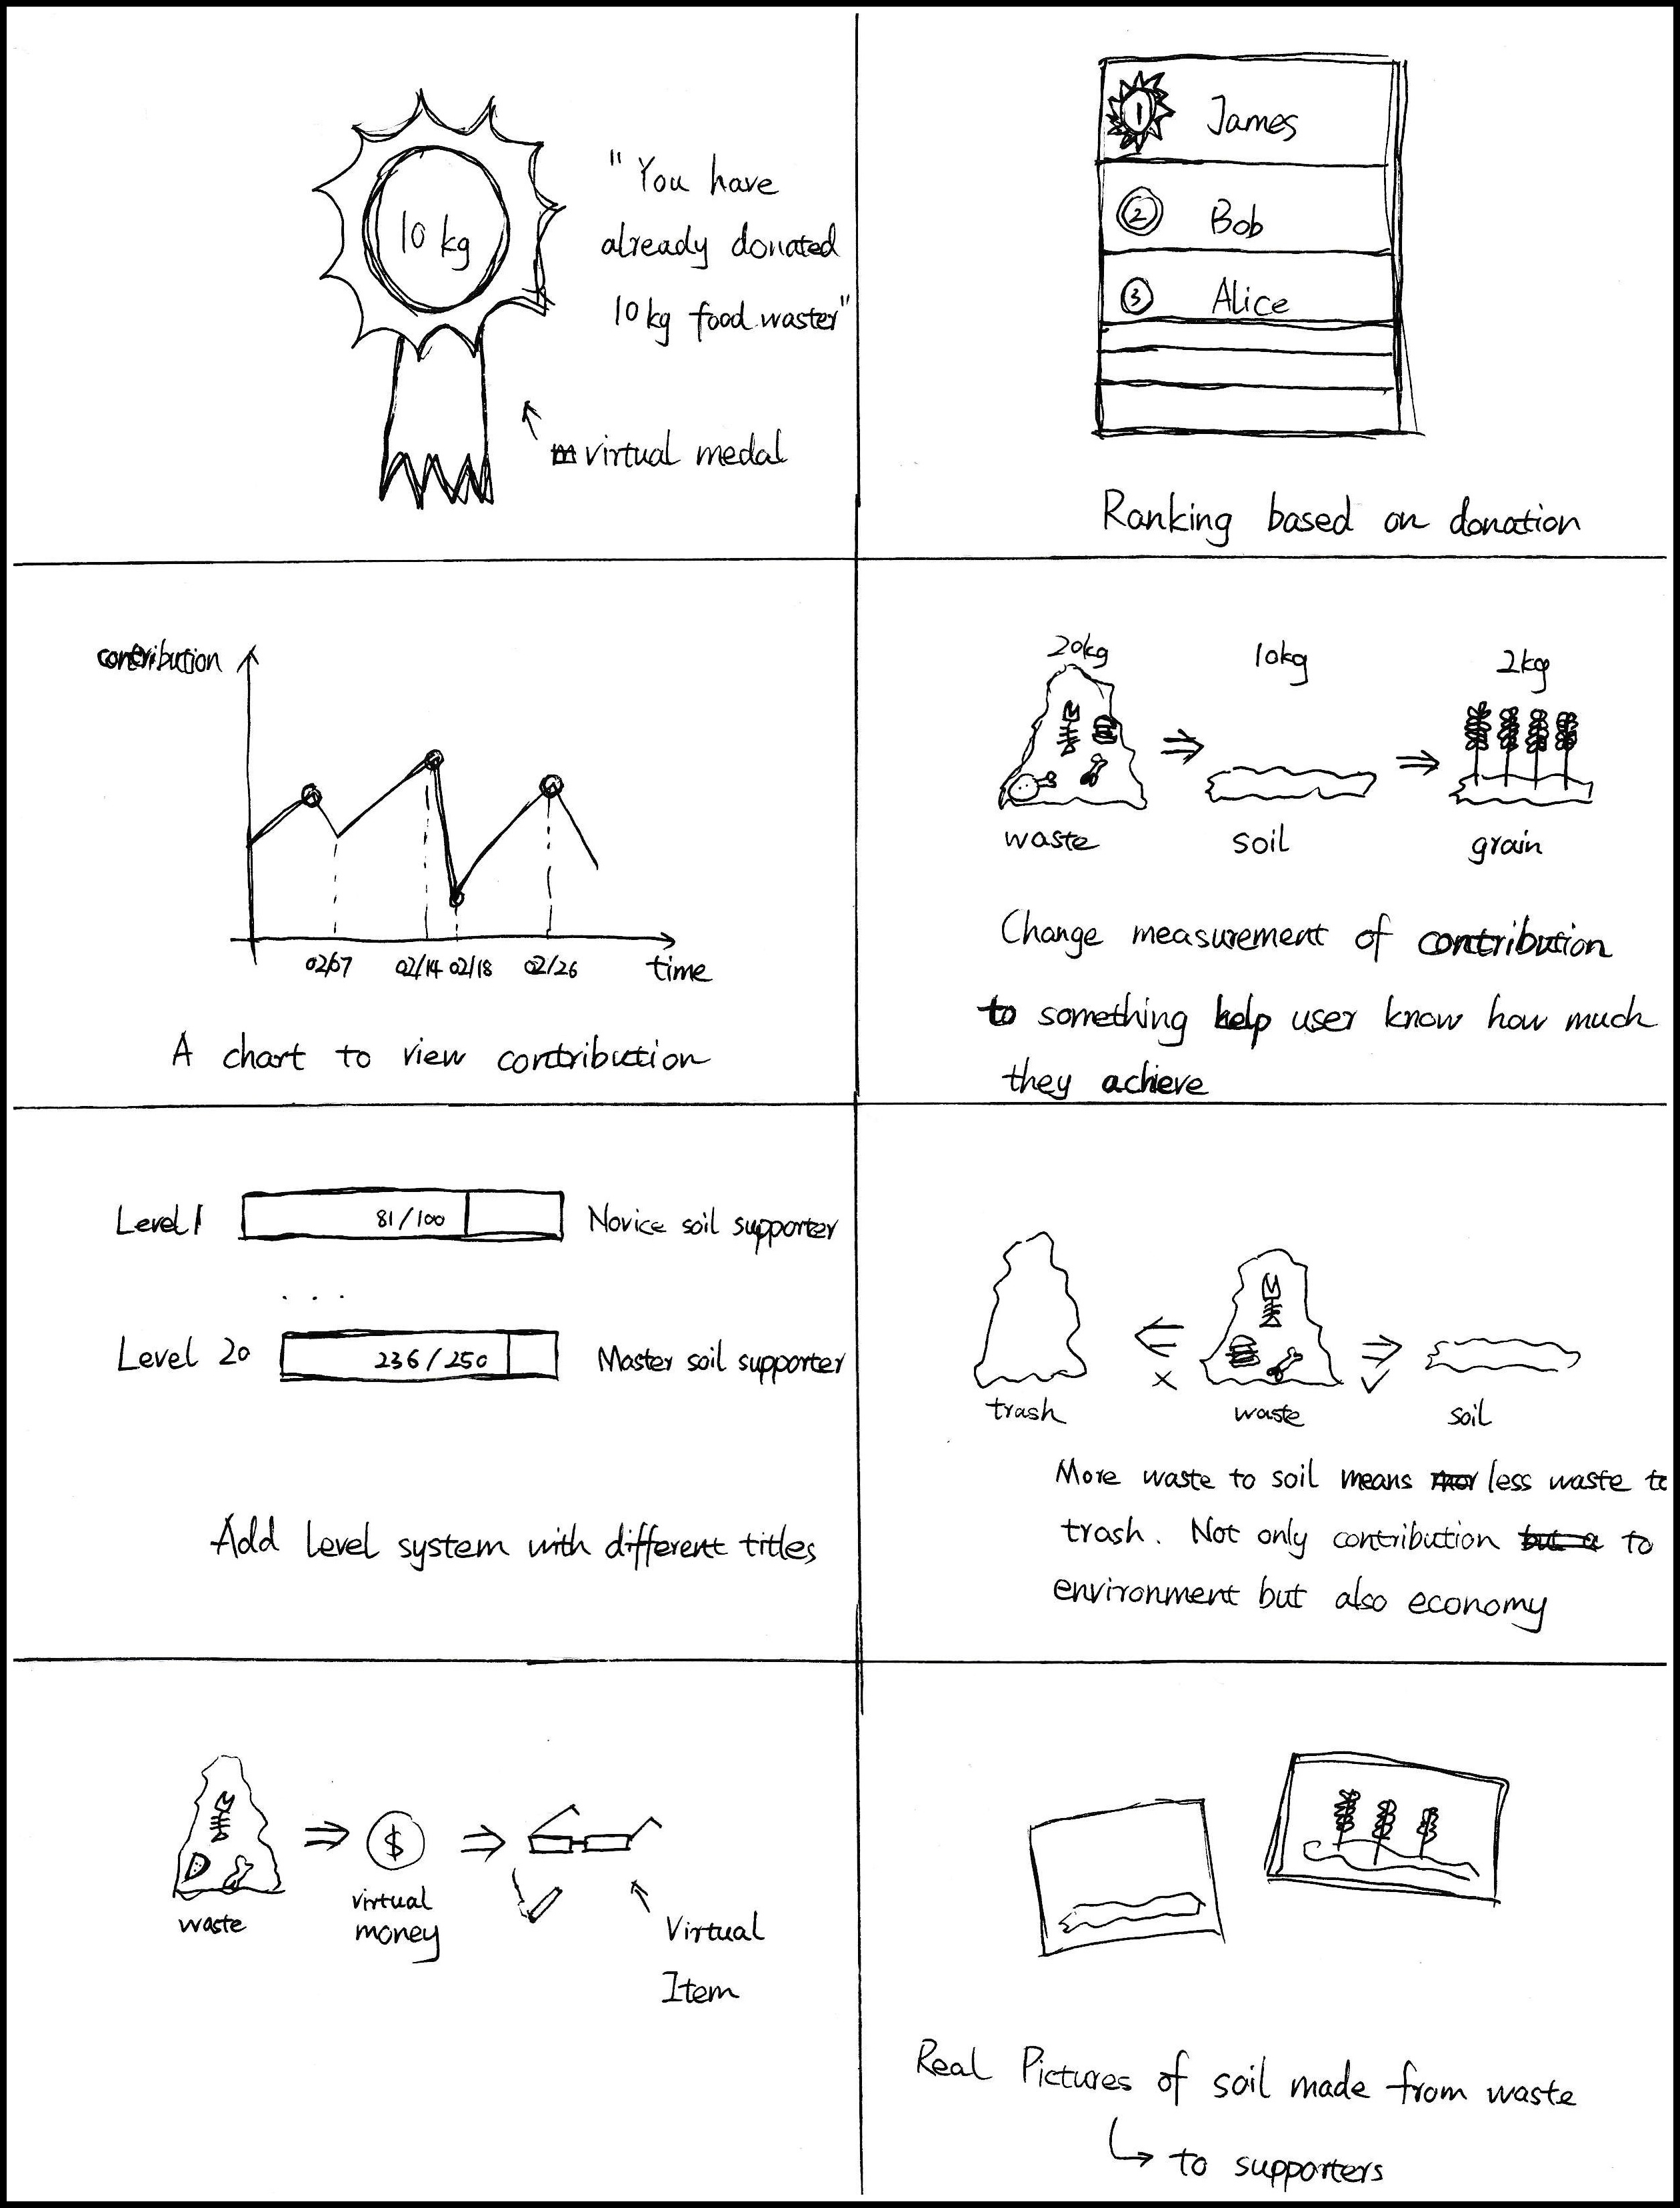 10 kg
"You have
already donated
10kg food waster"
virtual medal
1 James
2 Bob
3 Alice
Ranking based on donation
contribution
02/07 02/14 02/18 02/26 time
A chart to view contribution
20kg 10kg 2kg
waste soil grain
Change measurement of contribution
to something help user know how much
they achieve
Level 1 81/100 Novice soil supporter
...
Level 20 236/250 Master soil supporter
Add level system with different titles
trash waste soil
More waste to soil means less waste to
trash. Not only contribution to
environment but also economy
$
waste virtual
money
Virtual
Item
Real Pictures of soil made from waste
to supporters